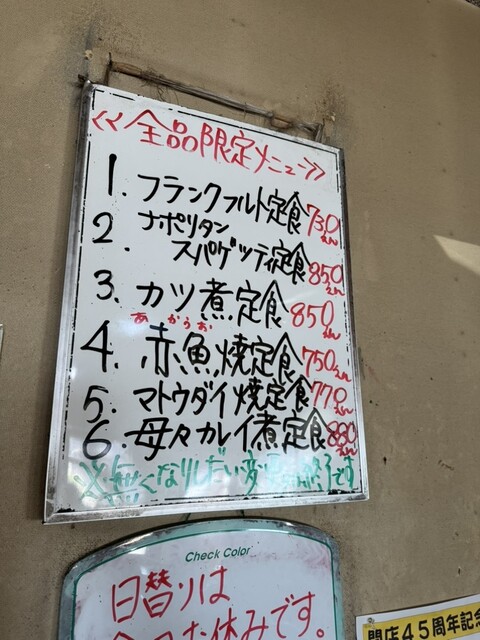 ≪全品限定メニュー≫
1. フランクフルト定食 730えん
2. ナポリタン
スパゲッティ定食 850えん
3. カツ煮定食 850えん
あかうお
4. 赤魚焼定食 750えん
5. マトウダイ焼定食 770えん
6. 母々カレイ煮定食 880えん
※無くなりしだい変更 終了です
Check Color
日替りは
お休みです。
開店45周年記念